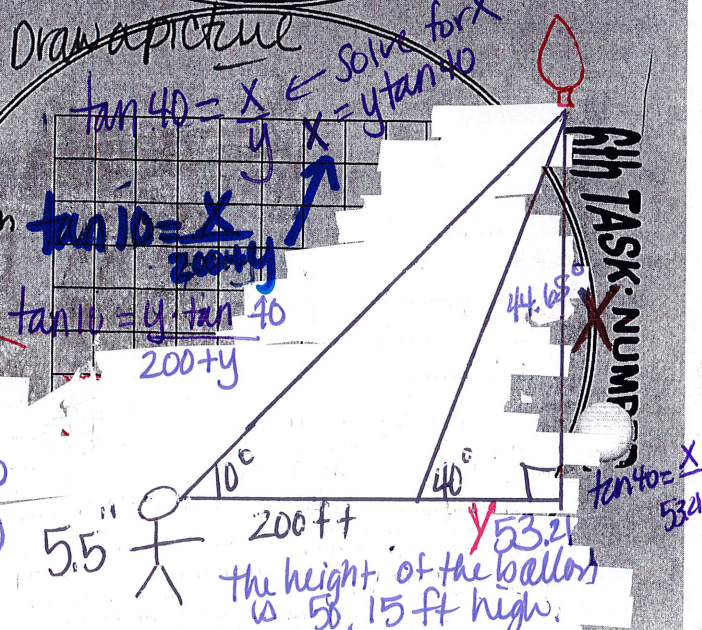 Draw a picture
tan 40 = x/y ← solve for x
x = y tan 40
tan 10 = x/200+y
tan 10 = y·tan 40/200+y
6th TASK·NUMBER
44.65°
x
10°
40°
tan 40 = x/53.21
200 ft
y 53.21
5.5"
the height of the ballon
is 58.15 ft high.